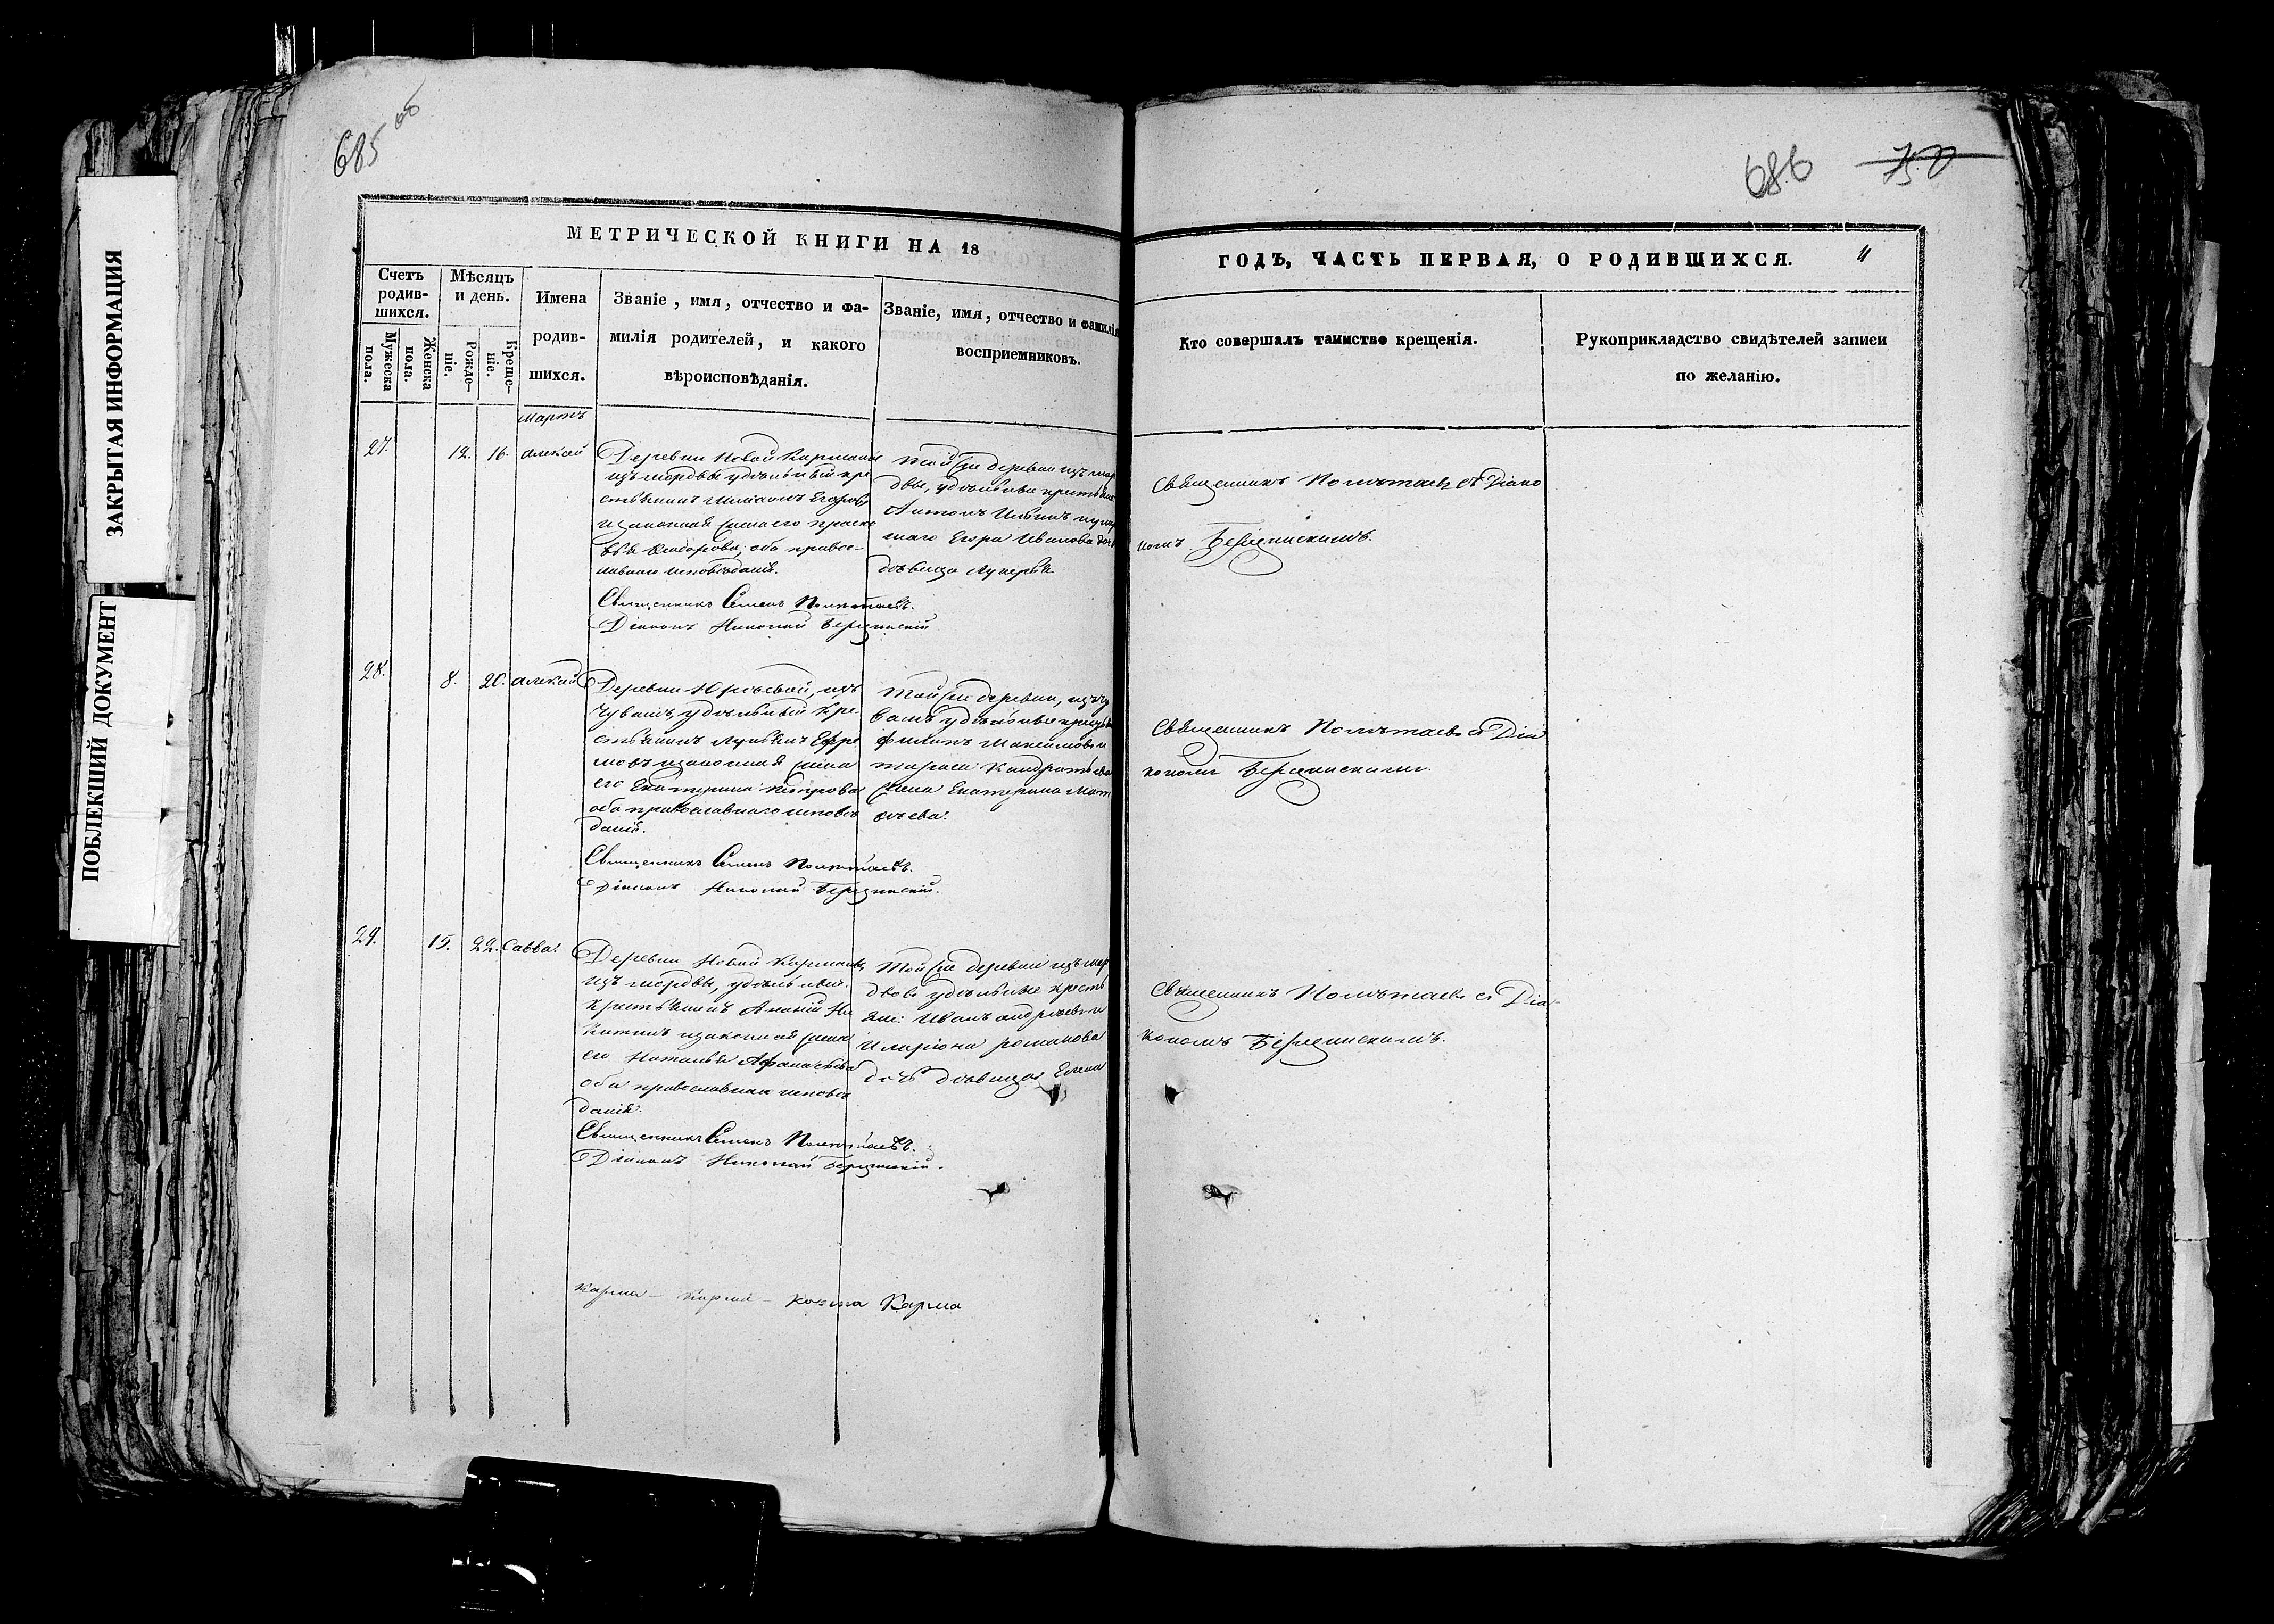 685 об
686
ЗАКРЫТАЯ ИНФОРМАЦИЯ
ПОБЛЕКШИЙ ДОКУМЕНТ
МЕТРИЧЕСКОЙ КНИГИ НА 18
Счетъ родив-шихся.
Мужеска пола.
Женска пола.
Мѣсяцъ и день.
Рожде-ніе.
Креще-ніе.
Имена
родив-
шихся.
Званіе, имя, отчество и фа-
милія родителей, и какого
вѣроисповѣданія.
Званіе, имя, отчество и фамилія
восприемниковъ.
Мартъ
27. 12. 16. Алексѣй
Деревни Новой Кармалы
изъ мордвы удѣльный кре
стьянинъ Егоровъ
изаконная жена его Праско
вья Ѳеодорова; оба правос-
лавнаго исповѣданія.
Священникъ Семенъ Полѣтаевъ.
Діаконъ Николай
Той же деревни изъ мор
двы, удѣльныи крестьяне
Антонъ
Егора Иванова дочь
дѣвица Лукерья.
28. 8. 20. Алексѣй
Деревни Юрьевой, изъ
Чувашъ, удѣльный кре-
стьянинъ Лукьянъ Ефре
мовъ изаконная жена
его Екатерина Петрова
оба православнаго исповѣ
данія.
Священникъ Семенъ Полѣтаевъ.
Діаконъ Николай
Той же деревни, изъ чу
вашъ удѣльные крестьяне
Филипъ Максимовъ и
Тараса Кондратьева
жена Екатерина Мат
ѳѣева.
29. 15. 22. Савва.
Деревни Новой Кармалы,
изъ мордвы, удѣльный
крестьянинъ Ананій Ни
китинъ изаконная жена
его Наталья Афанасьева
оба православнаго исповѣ
данія.
Священникъ Семенъ Полѣтаевъ.
Діаконъ Николай
Той же деревни изъ мор
двовъ удѣльные кресть
яне: Иванъ Андреевъ и
Иларіона Романова
дочь дѣвица Елена
Карма Карма
ГОДЪ, ЧАСТЬ ПЕРВАЯ, О РОДИВШИХСЯ.
Кто совершалъ таинство крещенія.
Рукоприкладство свидѣтелей записи
по желанію.
Священникъ Полѣтаевъ съ Діако
номъ
Священникъ Полѣтаевъ съ Діа
кономъ
Священникъ Полѣтаевъ съ Діа-
кономъ